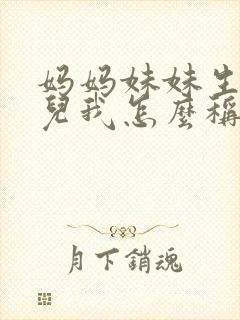 妈妈妹妹生
兒我怎麼稱
月下銷魂